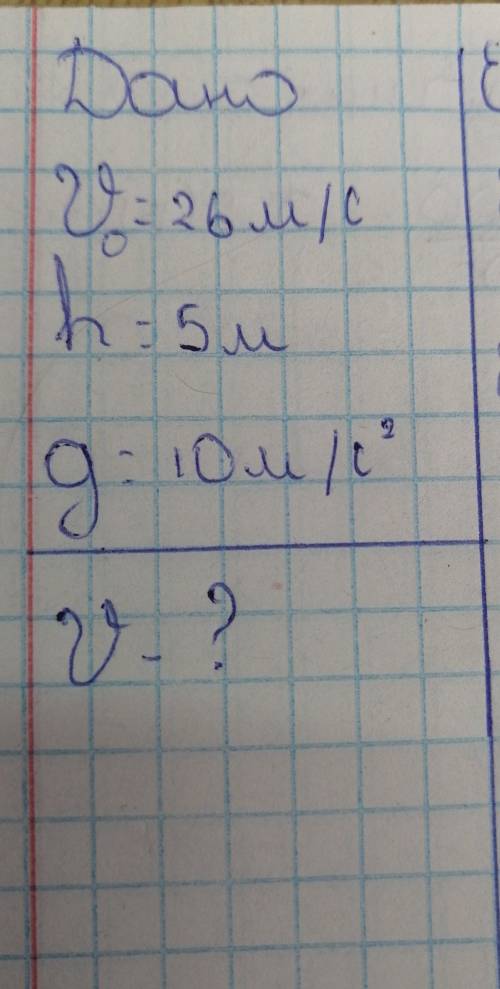 Дано
V₀ = 26 м/с
h = 5 м
g = 10 м/с²
V - ?